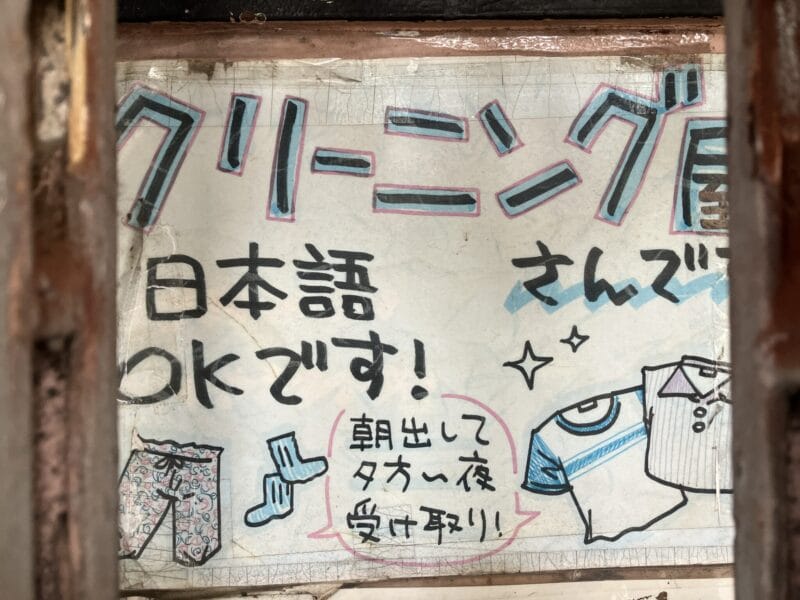 クリーニング屋
さんで
日本語
OKです!
朝出して
夕方〜夜
受け取り!